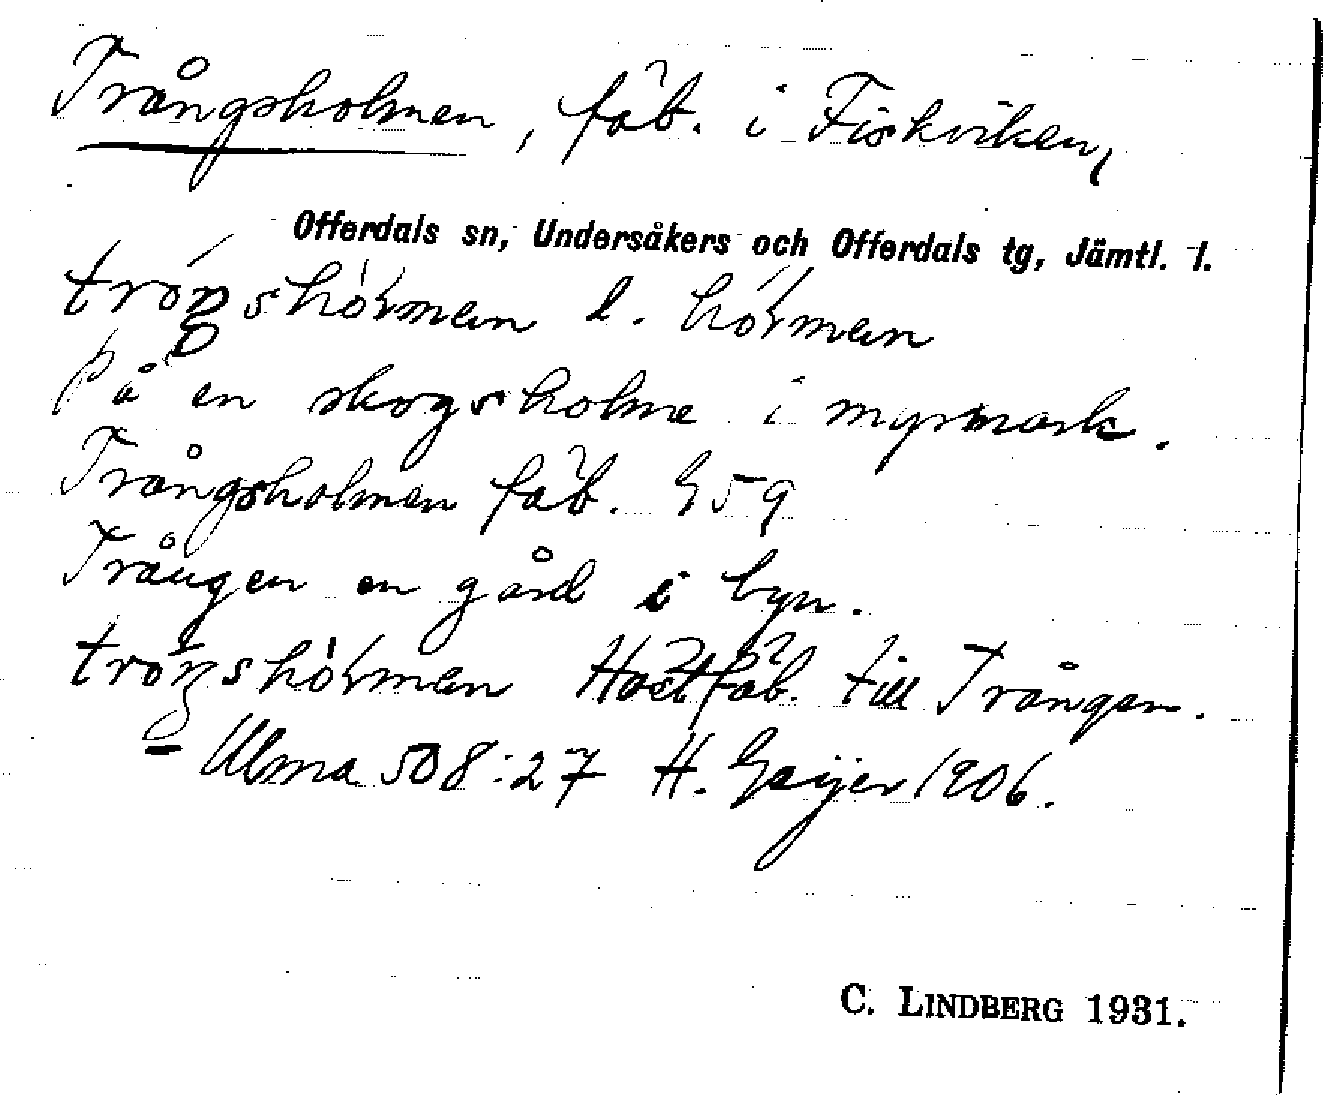 Trångsholmen, fäb. i Fiskviken,
Offerdals sn, Undersåkers och Offerdals tg, Jämtl. l.
l.
På en skogsholme i myrmark.
Trångsholmen fäb. G59
Trången en gård i byn.
Höstfäb. till Trången.
– Ulma 508:27 H. Geijer 1906.
C. LINDBERG 1931.